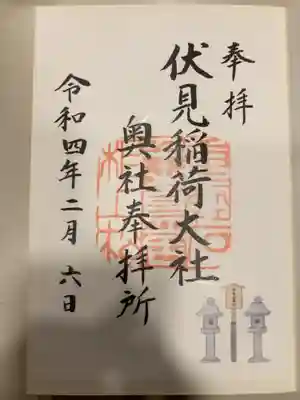 奉拝
伏見稲荷大社
奥社奉拝所
令和四年二月六日